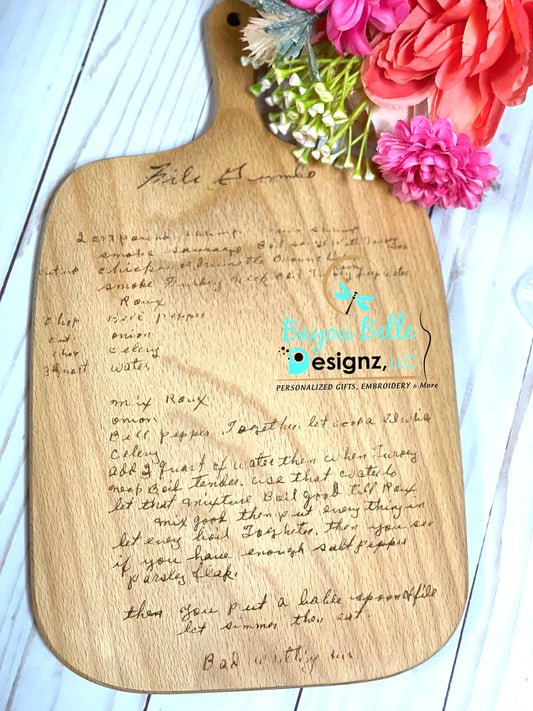 File Gumbo
2 or 3 pound shrimp shrimp
smoke sausage Boil with Turkey
cut up chicken or Brown
smoke Turkey neck Boil Turkey in water
Roux
chop Bell pepper
cut onion
chop celery
2 quart water
Bayou Belle
Designz, LLC
PERSONALIZED GIFTS, EMBROIDERY & More
mix Roux
onion
Bell pepper Together let cook a while
Celery
add 2 quart of water then when Turkey
neck Boil tender. use that water to
let that mixture Boil good till Roux
mix good then put everything in
let every boil Together. then you see
if you have enough salt pepper
parsley flak.
then you put a table spoon of file
let simmer then eat.
Bad writing